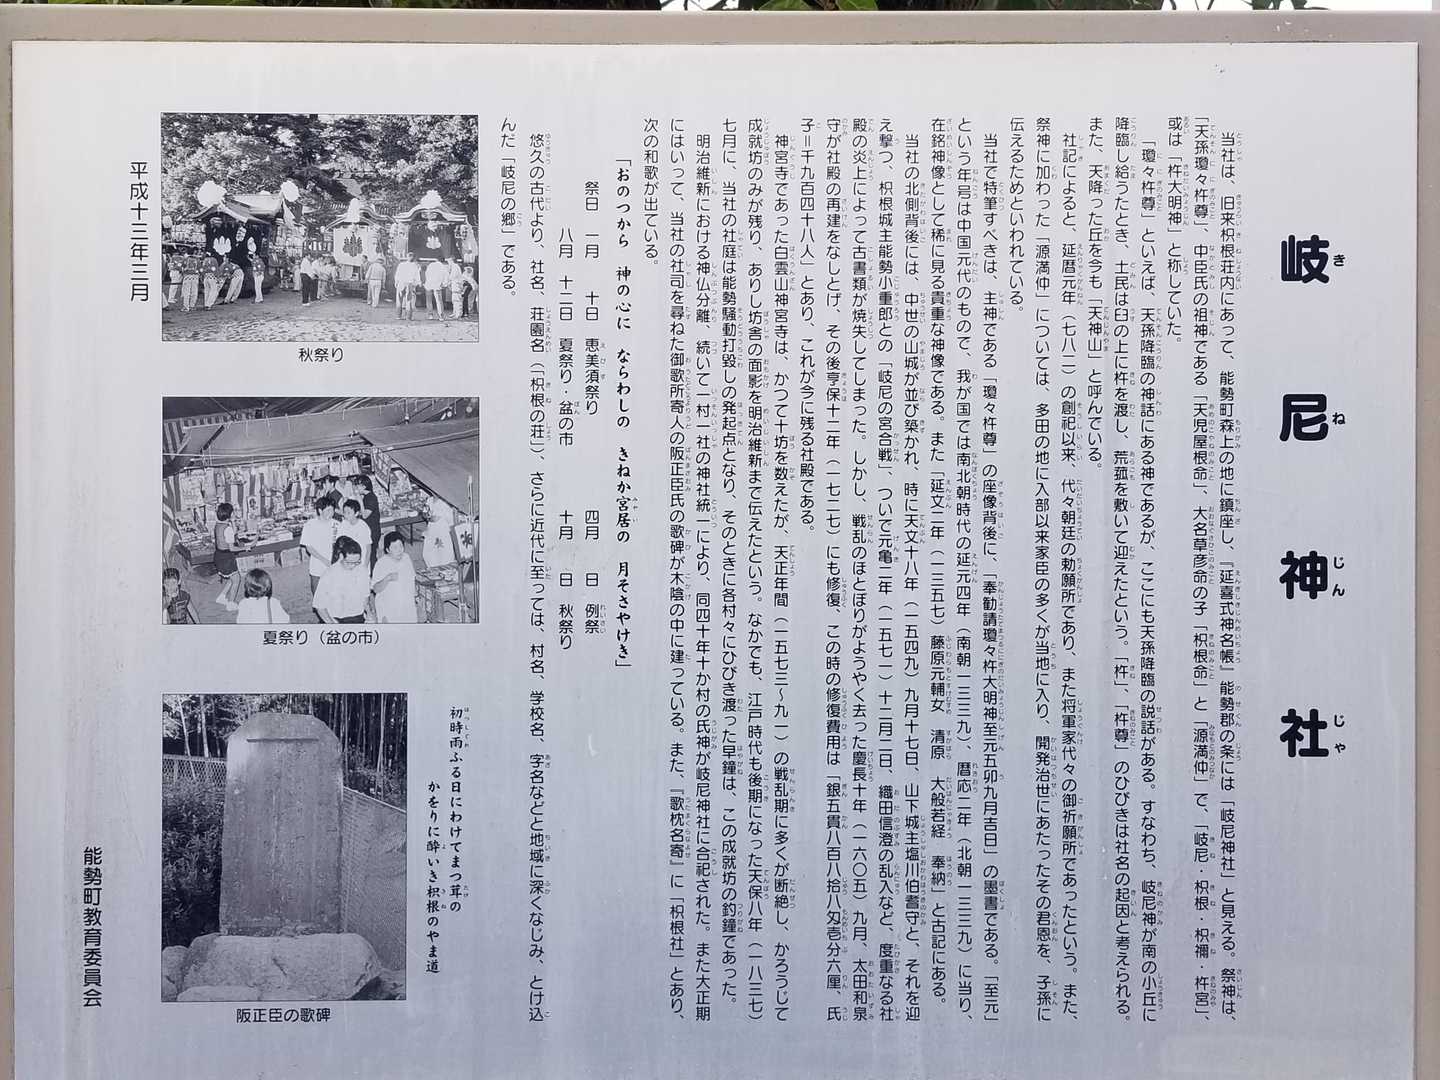 岐尼神社
当社は、旧来枳根荘内にあって、能勢町森上の地に鎮座し、『延喜式神名帳』能勢郡の条には「岐尼神社」と見える。祭神は、
「天孫瓊々杵尊」、中臣氏の祖神である「天児屋根命」、大名草彦命の子「枳根命」と「源満仲」で、「岐尼・枳根・枳禰・杵宮」、
或は「杵大明神」と称していた。
「瓊々杵尊」といえば、天孫降臨の神話にある神であるが、ここにも天孫降臨の説話がある。すなわち、岐尼神が南の小丘に
降臨し給うたとき、土民は臼の上に杵を渡し、荒菰を敷いて迎えたという。「杵」、「杵尊」のひびきは社名の起因と考えられる。
また、天降った丘を今も「天神山」と呼んでいる。
社記によると、延暦元年（七八二）の創祀以来、代々朝廷の勅願所であり、また将軍家代々の御祈願所であったという。また、
祭神に加わった「源満仲」については、多田の地に入部以来家臣の多くが当地に入り、開発治世にあたったその君恩を、子孫に
伝えるためといわれている。
当社で特筆すべきは、主神である「瓊々杵尊」の座像背後に、「奉勧請瓊々杵大明神至元五卯九月吉日」の墨書である。「至元」
という年号は中国元代のもので、我が国では南北朝時代の延元四年（南朝一三三九）、暦応二年（北朝一三三九）に当り、
在銘神像として稀に見る貴重な神像である。また「延文二年（一三五七）藤原元輔女 清原 大般若経 奉納」と古記にある。
当社の北側背後には、中世の山城が並び築かれ、時に天文十八年（一五四九）九月十七日、山下城主塩川伯耆守と、それを迎
え撃つ、枳根城主能勢小重郎との「岐尼の宮合戦」、ついで元亀二年（一五七一）十二月二日、織田信澄の乱入など、度重なる社
殿の炎上によって古書類が焼失してしまった。しかし、戦乱のほとぼりがようやく去った慶長十年（一六〇五）九月、太田和泉
守が社殿の再建をなしとげ、その後享保十二年（一七二七）にも修復、この時の修復費用は「銀五貫八百八拾八匁壱分六厘、氏
子＝千九百四十八人」とあり、これが今に残る社殿である。
神宮寺であった白雲山神宮寺は、かつて十坊を数えたが、天正年間（一五七三～九一）の戦乱期に多くが断絶し、かろうじて
成就坊のみが残り、ありし坊舎の面影を明治維新まで伝えたという。なかでも、江戸時代も後期になった天保八年（一八三七）
七月に、当社の社庭は能勢騒動打毀しの発起点となり、そのときに各村々にひびき渡った早鐘は、この成就坊の釣鐘であった。
明治維新における神仏分離、続いて一村一社の神社統一により、同四十年十か村の氏神が岐尼神社に合祀された。また大正期
にはいって、当社の社司を尋ねた御歌所寄人の阪正臣氏の歌碑が木陰の中に建っている。また、『歌枕名寄』に「枳根社」とあり、
次の和歌が出ている。
「おのつから 神の心に ならわしの きねか宮居の 月そさやけき」
祭日 一月 十日 恵美須祭り 四月 日 例祭
八月 十二日 夏祭り・盆の市 十月 日 秋祭り
悠久の古代より、社名、荘園名（「枳根の荘」）、さらに近代に至っては、村名、学校名、字名などと地域に深くなじみ、とけ込
んだ「岐尼の郷」である。
秋祭り
夏祭り（盆の市）
初時雨ふる日にわけてまつ茸の
かをりに酔いき枳根のやま道
阪正臣の歌碑
平成十三年三月
能勢町教育委員会